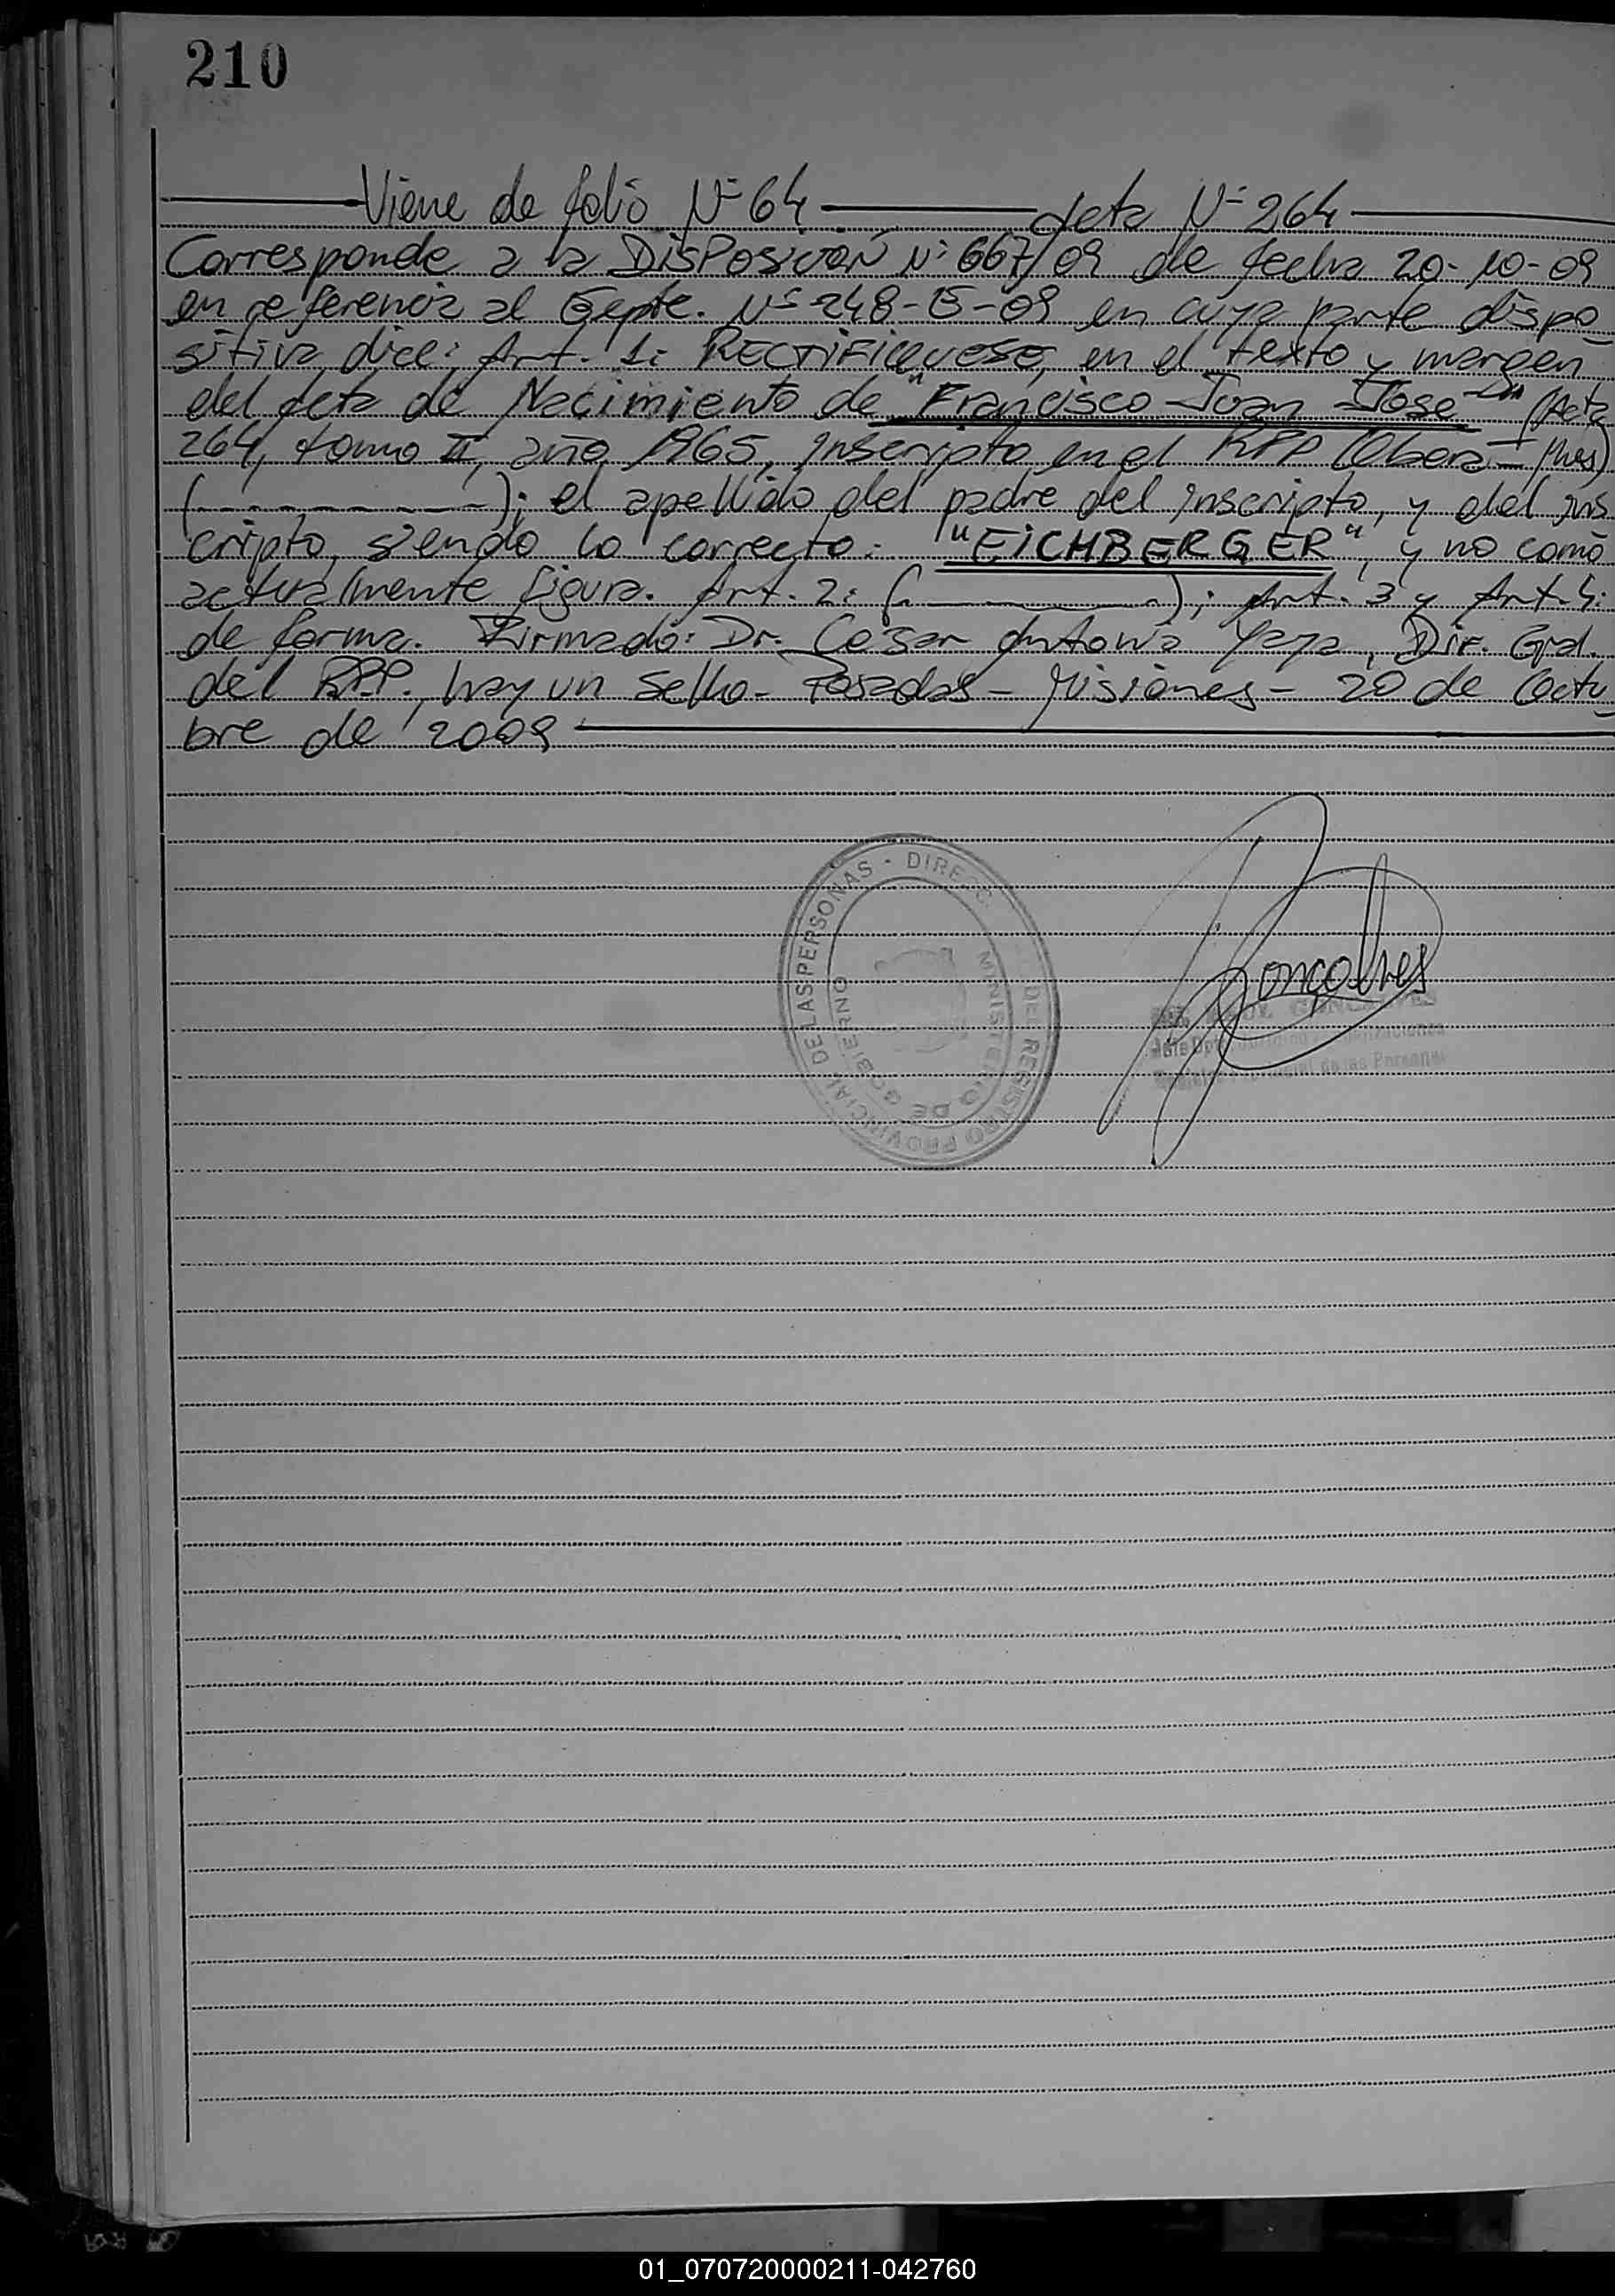 210
Viene de folio Nº 64 Acta Nº 264
Corresponde a la DISPOSICIÓN Nº 667/09 de fecha 20-10-09
en referencia al Expte. Nº 248-E-09 en cuya parte dispo
sitiva dice: Art. 1: RECTIFIQUESE, en el texto y margen
del Acta de Nacimiento de "Francisco Juan Jose" (Acta
264, tomo II, año 1965, Inscripto en el RPP (Obera - Mnes)
(----------); el apellido del padre del inscripto, y del ins
cripto, siendo lo correcto: "EICHBERGER", y no como
actualmente figura. Art. 2: (----------); Art. 3 y Art. 4:
de forma. Firmado: Dr. Cesar Antonio Yaya, Dir. Gral.
del RPP, hay un sello - Posadas - Misiones - 20 de Octu
bre de 2009
DIRECC. DEL REGISTRO PROVINCIAL DE LAS PERSONAS -
MINISTERIO DE GOBIERNO
Gonçalves
RAUL GONCALVES
Jefe Dpto.
Registro Provincial de las Personas
01_070720000211-042760